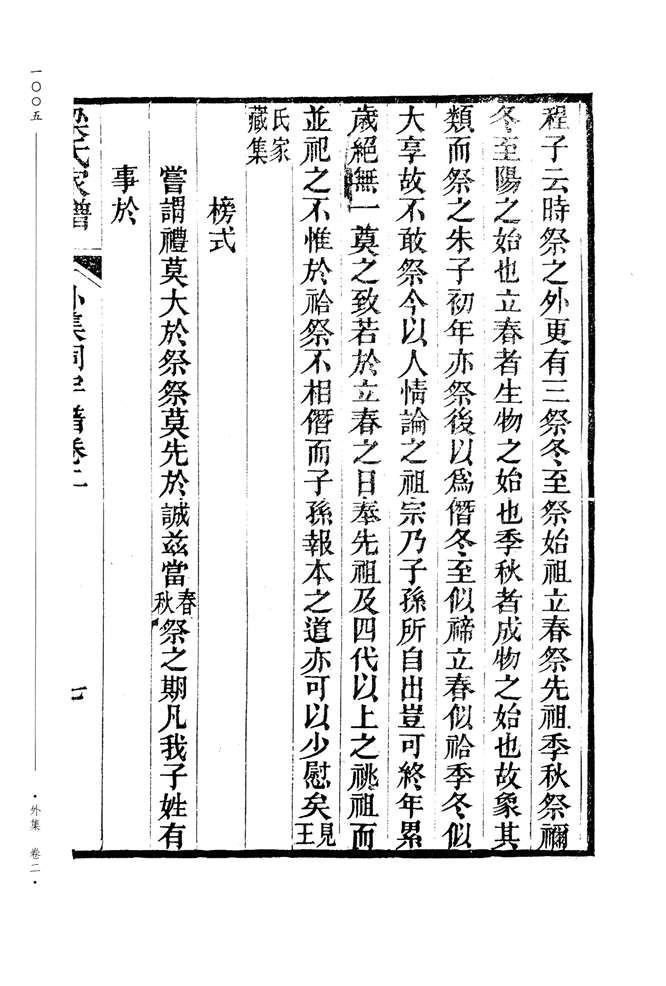 程子云時祭之外更有三祭冬至祭始祖立春祭先祖季秋祭禰
冬至陽之始也立春者生物之始也季秋者成物之始也故象其
類而祭之朱子初年亦祭後以爲僭冬至似禘立春似祫季冬似
大享故不敢祭今以人情論之祖宗乃子孫所自出豈可終年累
歲絕無一奠之致若於立春之日奉先祖及四代以上之祧祖而
並祀之不惟於祫祭不相僭而子孫報本之道亦可以少慰矣見王
氏家藏集
榜式
嘗謂禮莫大於祭祭莫先於誠兹當春秋祭之期凡我子姓有
事於
氏家譜
外集祠宇譜卷二
七
一〇〇五
·外集 卷二·